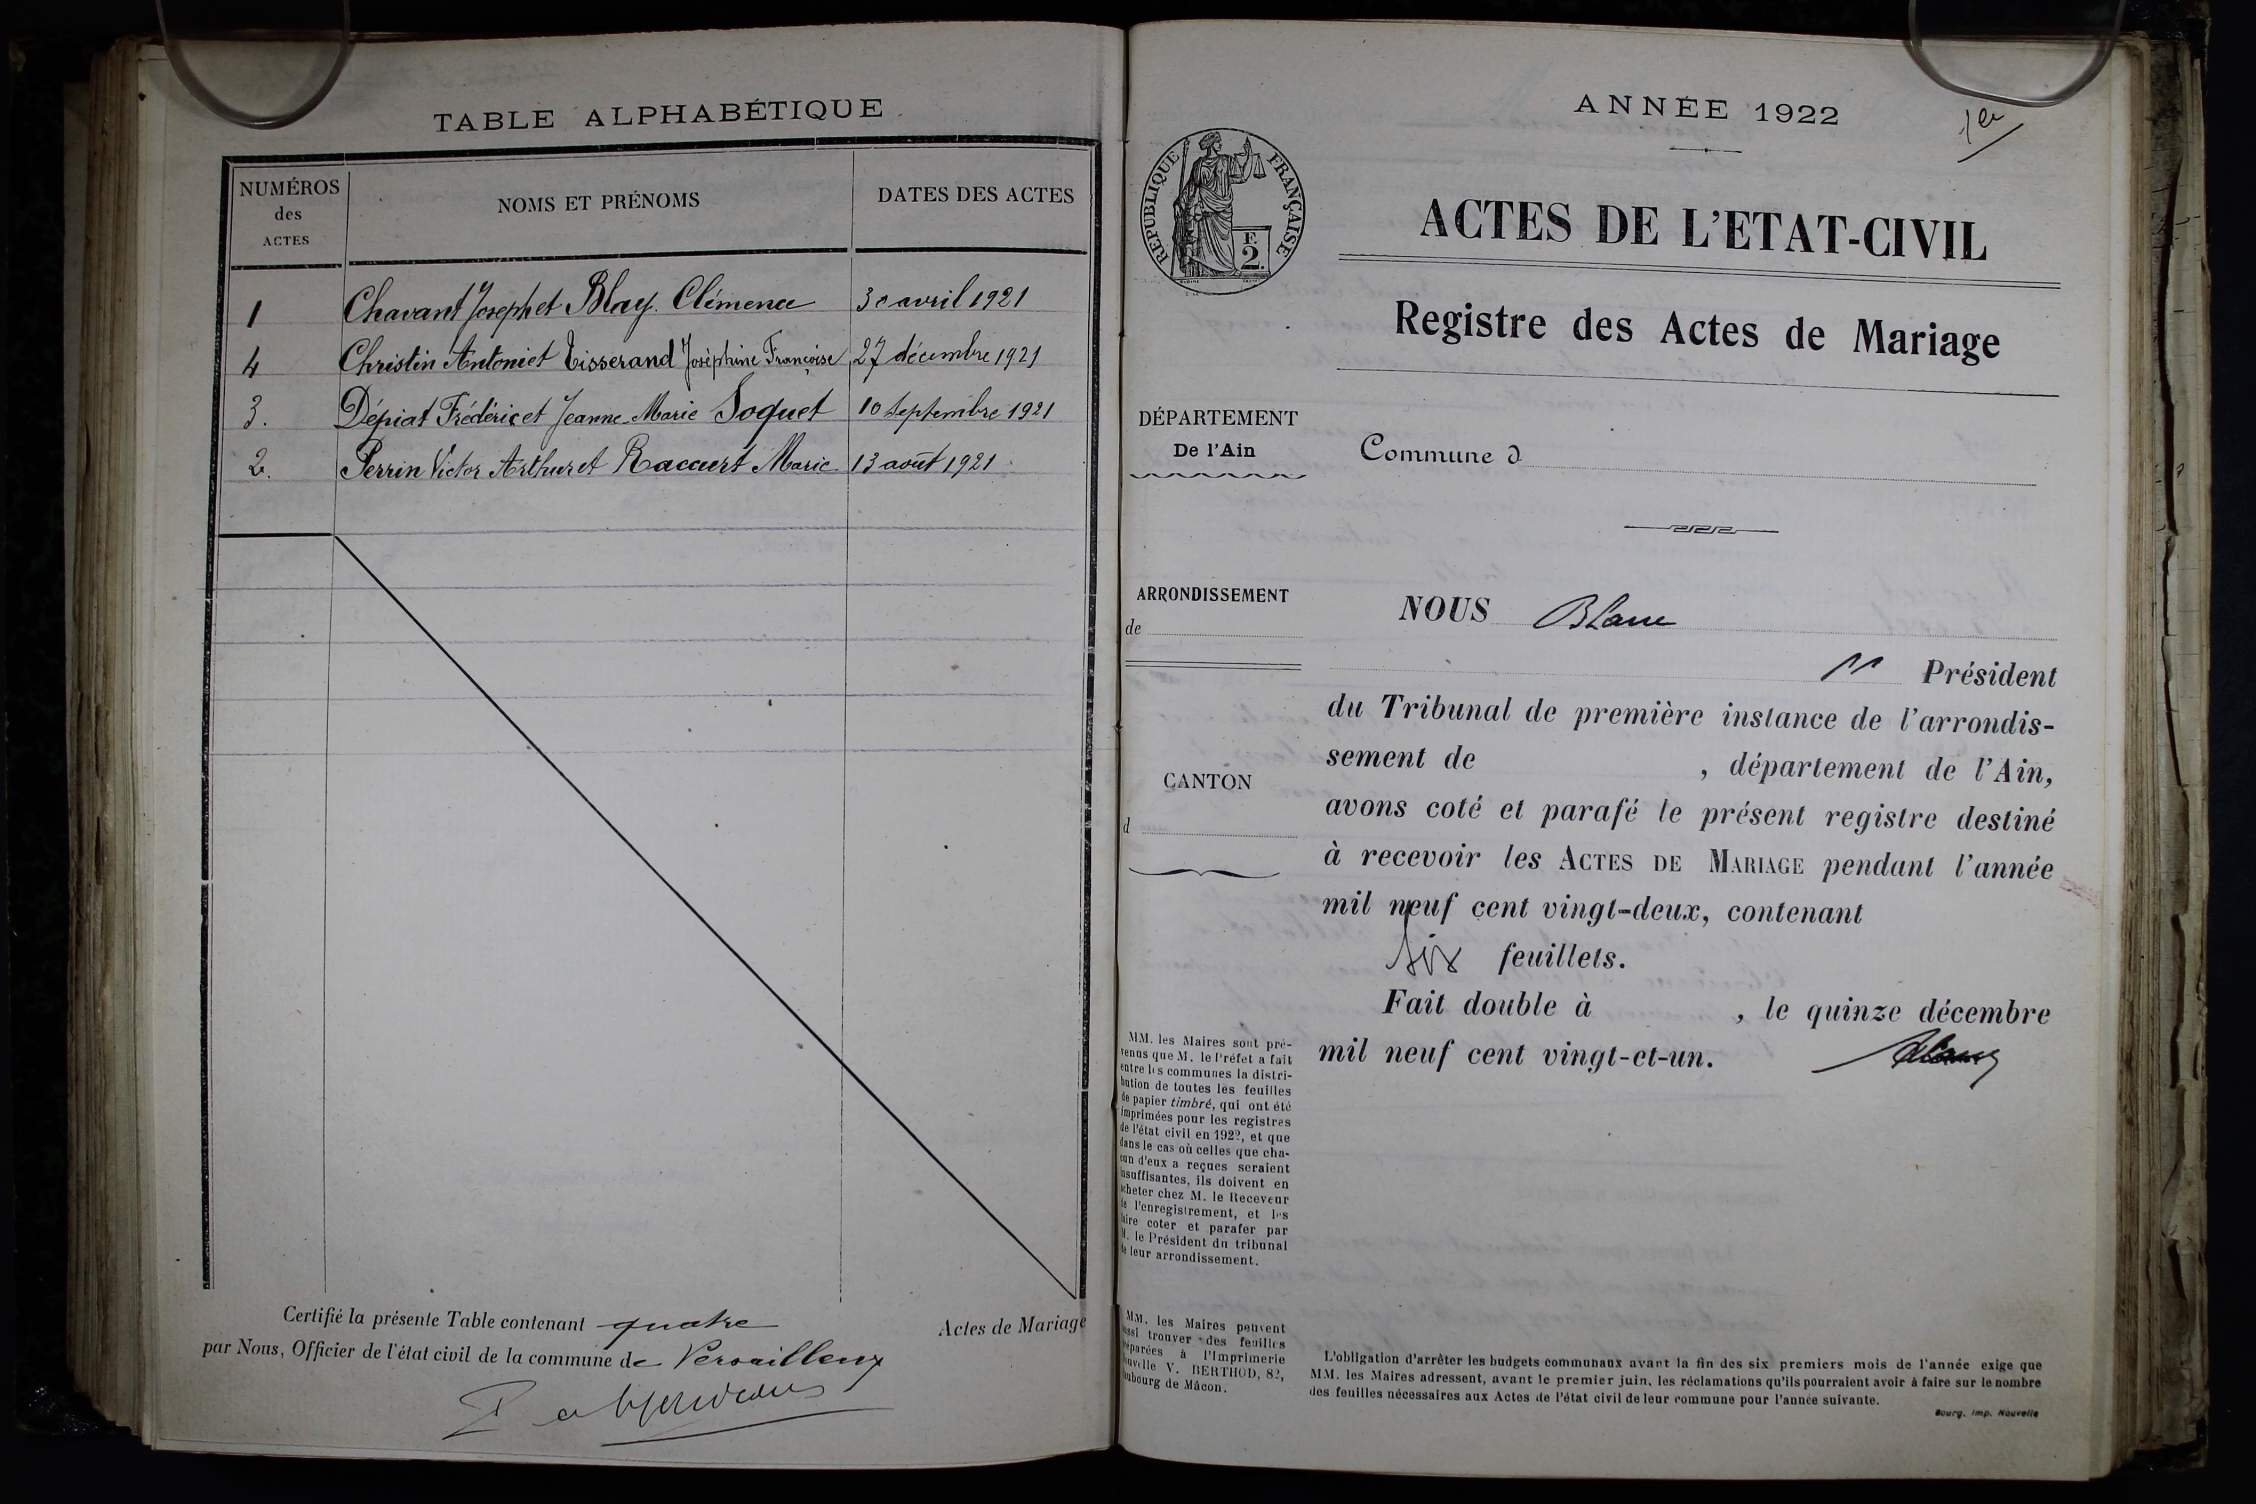 TABLE ALPHABÉTIQUE
NUMÉROS des ACTES NOMS ET PRÉNOMS DATES DES ACTES
1 Chavant Joseph et Blay Clémence 30 avril 1921
4 Christin Antoni et Tisserand Joséphine Françoise 27 décembre 1921
3. Dépiat Frédéric et Jeanne Marie Soquet 10 septembre 1921
2. Perrin Victor Arthur et Raccurt Marie 13 août 1921
Certifié la présente Table contenant quatre Actes de Mariage
par Nous, Officier de l'état civil de la commune de Versailleux
ANNÉE 1922
1er
RÉPUBLIQUE FRANÇAISE
F. 2.
ACTES DE L'ETAT-CIVIL
Registre des Actes de Mariage
DÉPARTEMENT
De l'Ain
Commune d
ARRONDISSEMENT
de
CANTON
d
NOUS Blanc
Président
du Tribunal de première instance de l'arrondis-
sement de , département de l'Ain,
avons coté et parafé le présent registre destiné
à recevoir les ACTES DE MARIAGE pendant l'année
mil neuf cent vingt-deux, contenant
six feuillets.
Fait double à , le quinze décembre
mil neuf cent vingt-et-un.
MM. les Maires sont pré-
venus que M. le Préfet a fait
entre les communes la distri-
bution de toutes les feuilles
de papier timbré, qui ont été
imprimées pour les registres
de l'état civil en 1922, et que
dans le cas où celles que cha-
cun d'eux a reçues seraient
insuffisantes, ils doivent en
acheter chez M. le Receveur
de l'enregistrement, et les
faire coter et parafer par
M. le Président du tribunal
de leur arrondissement.
MM. les Maires peuvent
aussi trouver des feuilles
préparées à l'Imprimerie
Nouvelle V. BERTHOD, 82,
faubourg de Mâcon.
L'obligation d'arrêter les budgets communaux avant la fin des six premiers mois de l'année exige que
MM. les Maires adressent, avant le premier juin, les réclamations qu'ils pourraient avoir à faire sur le nombre
des feuilles nécessaires aux Actes de l'état civil de leur commune pour l'année suivante.
Bourg. Imp. Nouvelle